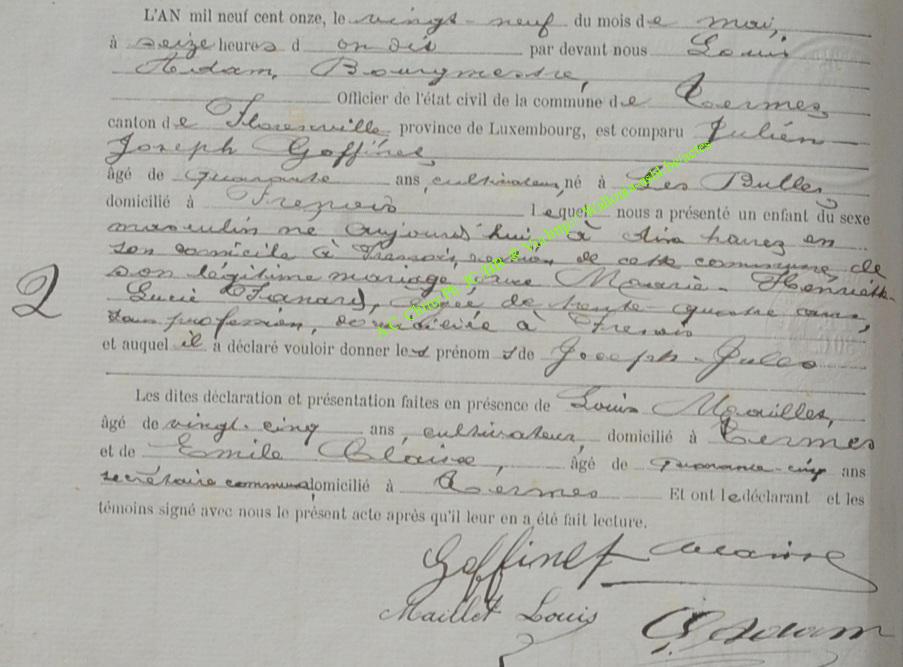 L'AN mil neuf cent onze, le vingt-neuf du mois de mai,
à seize heures d on dis par devant nous Louis
Adam, Bourgmestre,
Officier de l'état civil de la commune de Termes
canton de Florenville province de Luxembourg, est comparu Julien
Joseph Goffinet,
âgé de quarante ans, cultivateur, né à Les Bulles
domicilié à Frenois lequel nous a présenté un enfant du sexe
masculin né aujourd'hui à dix heures en
son domicile à Frenois, section de cette commune, de
son légitime mariage avec Maria-Henriette-
Lucie, âgée de trente-quatre ans,
sans profession, domiciliée à Frenois
et auquel il a déclaré vouloir donner les prénoms de Joseph-Jules
2
Les dites déclaration et présentation faites en présence de Louis Maillet,
âgé de vingt-cinq ans, cultivateur, domicilié à Termes
et de Emile Claisse, âgé de quarante-cinq ans
secrétaire communal domicilié à Termes Et ont le déclarant et les
témoins signé avec nous le présent acte après qu'il leur en a été fait lecture.
Goffinet
Maillet Louis
Adam